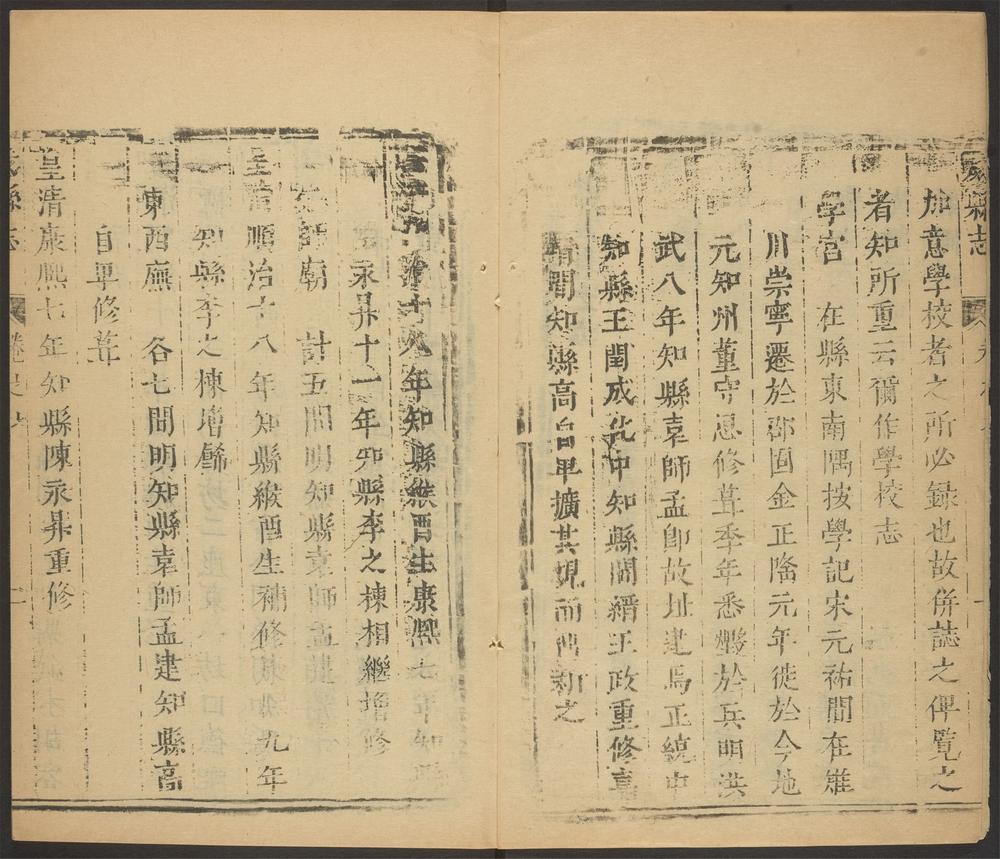 縣志
加意學校者之所必録也故併誌之俾覽之
者知所重云爾作學校志
學宮 在縣東南隅按學記宋元祐間在雎
川崇寧遷於郭固金正隆元年徙於今地
元知州董守思修葺季年悉燬於兵明洪
武八年知縣袁師孟即故址建焉正統中
知縣王閏成化中知縣閻縉王政重修嘉
靖間知縣高自卑擴其規而一新之
十八年知縣緱酉生康熙七年知
永昇十一年知縣李之棟相繼增修
廟 計五間明知縣袁師孟建
皇清順治十八年知縣緱酉生補修 九年
知縣李之棟增
東西廡 各七間明知縣袁師孟建知縣高
自卑修葺
皇清康熙七年知縣陳永昇重修
縣志 二